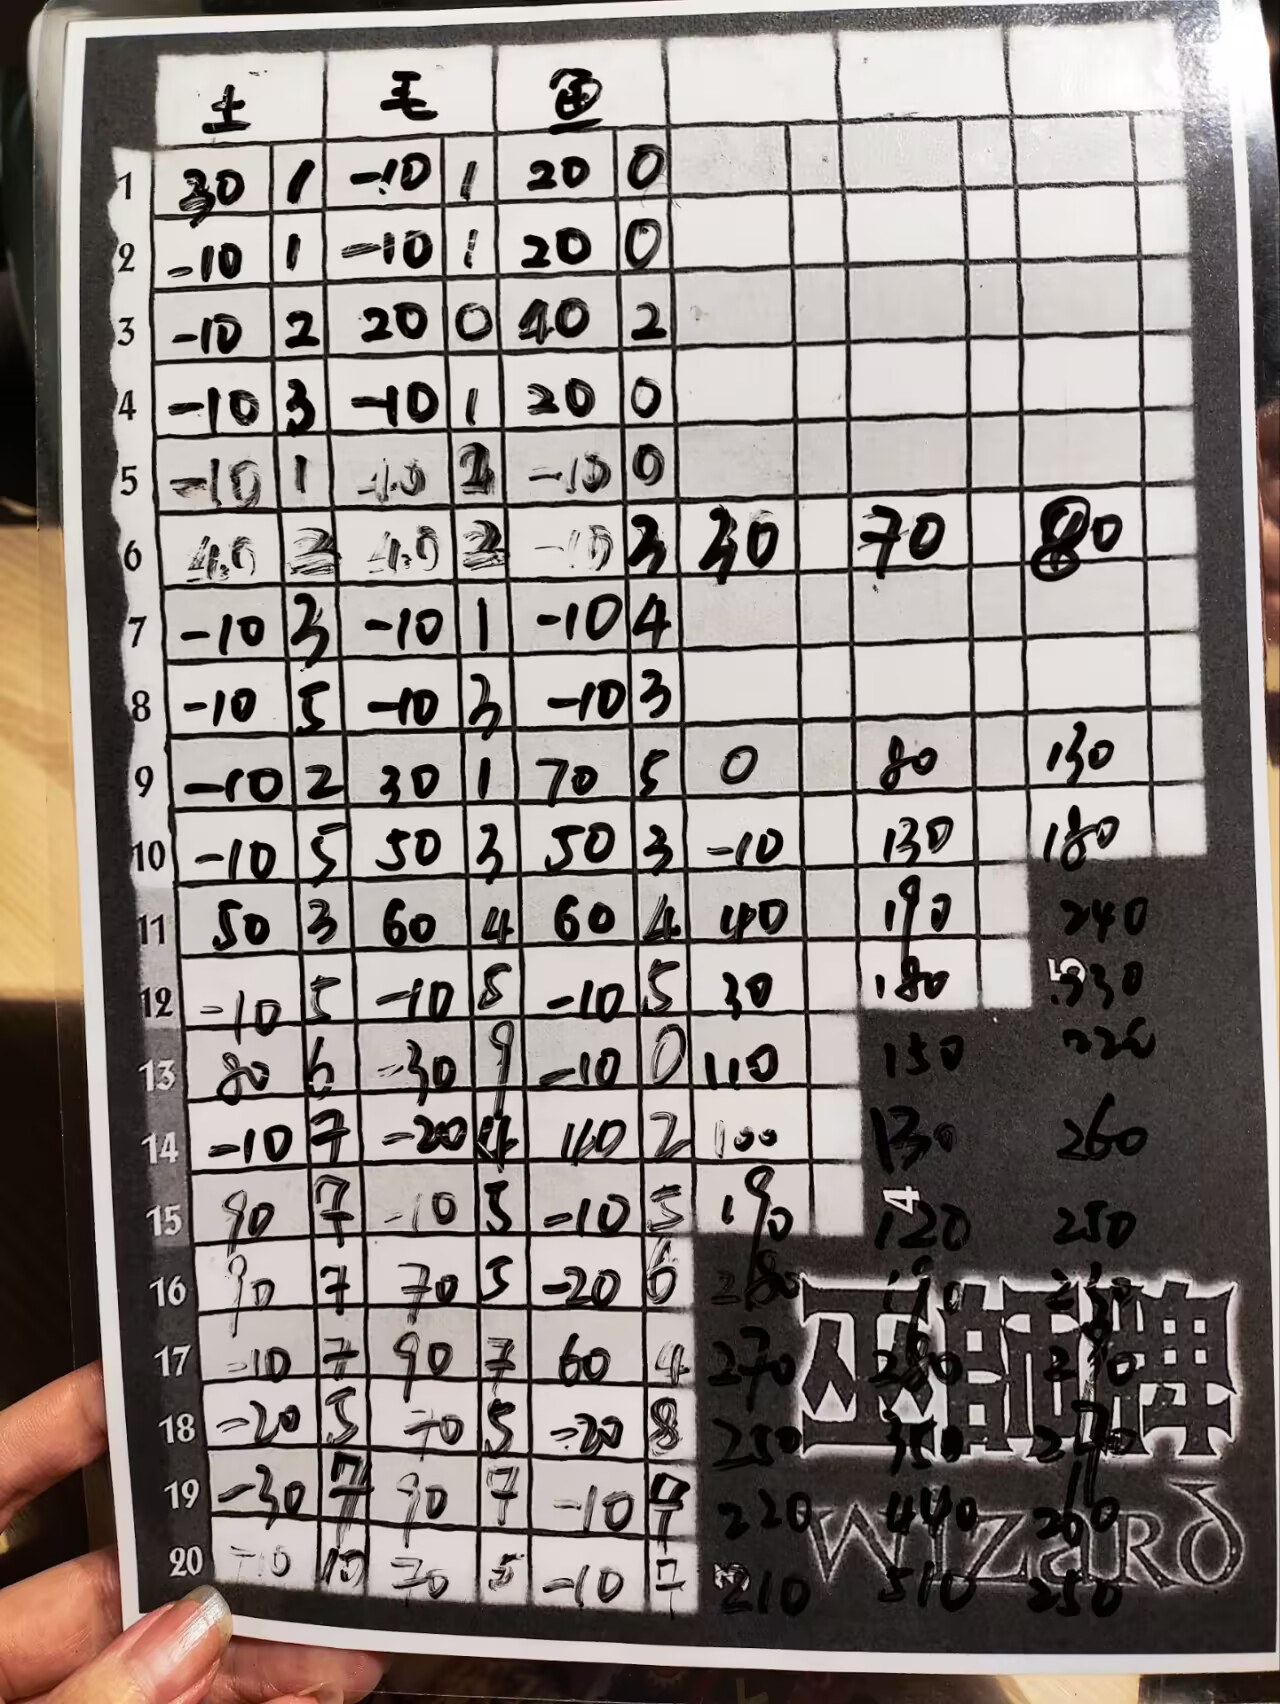 土 毛 鱼
1 30 1 -10 1 20 0
2 -10 1 -10 1 20 0
3 -10 2 20 0 40 2
4 -10 3 -10 1 20 0
5 -10 1 -10 2 -10 0
6 40 2 40 2 -10 3 30 70 80
7 -10 3 -10 1 -10 4
8 -10 5 -10 3 -10 3
9 -10 2 30 1 70 5 0 80 130
10 -10 5 50 3 50 3 -10 130 180
11 50 3 60 4 60 4 40 190 240
12 -10 5 -10 5 -10 5 30 180 5
13 80 6 -30 9 -10 0 110 150
14 -10 7 -20 4 40 2 100 130 260
15 90 7 -10 5 -10 5 190 4 120 250
16 90 7 70 5 -20 6 280 190
17 -10 7 90 7 60 4 270 280 290
18 -20 5 70 5 -20 8 250 350 270
19 -30 7 90 7 -10 220 440 260
20 -10 10 70 5 -10 7 3 210 510 250
巫師牌
WIZARD